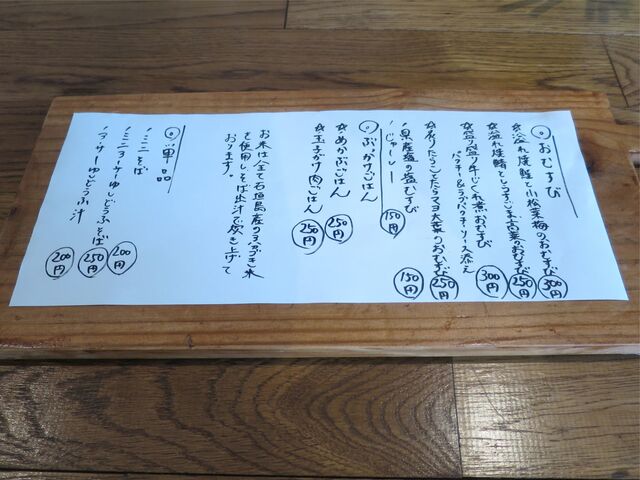 ◎おむすび
☆溢れ焼鮭と小松菜梅のおむすび 300円
☆溢れ焼鯖としそごま高菜のおむすび 250円
☆盛り盛り牛しぐれ煮おむすび
パクチー&ラブパクチーソース添え 300円
☆炙りたらことたらマヨ大葉のおむすび 250円
・県産塩の塩むすび 150円
・じゅーしー 150円
◎ぶっかけごはん
☆めかぶごはん 250円
☆玉子がけ肉ごはん 250円
お米は全て石垣島産のひとめぼれ米
を使用し、そば出汁で炊き上げて
おります。
◎単品
・ミニそば 200円
・ミニアーサーゆしどうふそば 250円
・アーサーゆしどうふ汁 200円